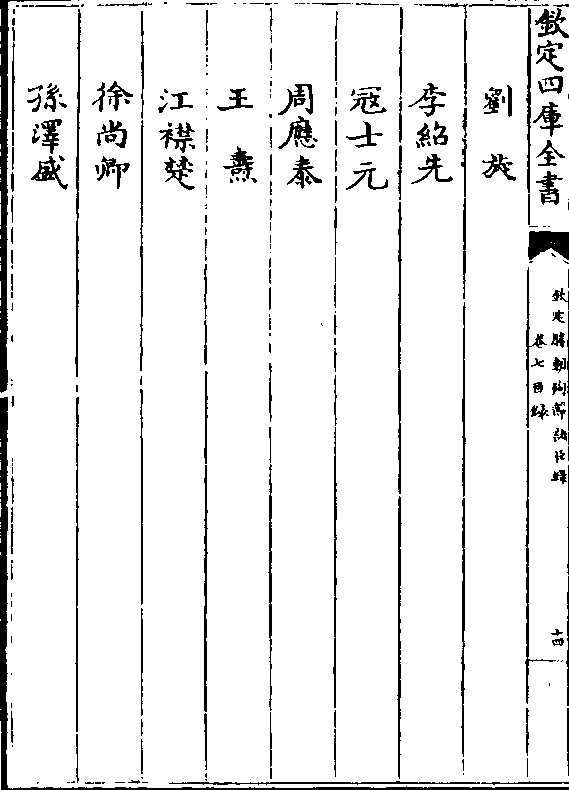 欽定四庫全書
欽定勝朝殉節諸臣錄
卷七目錄
十四
劉旋
李紹先
冦士元
周應泰
王燾
江襟楚
徐尚卿
孫澤盛